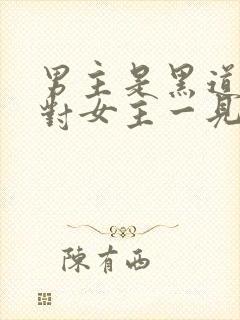 男主是黑道
對女主一見
陳有西